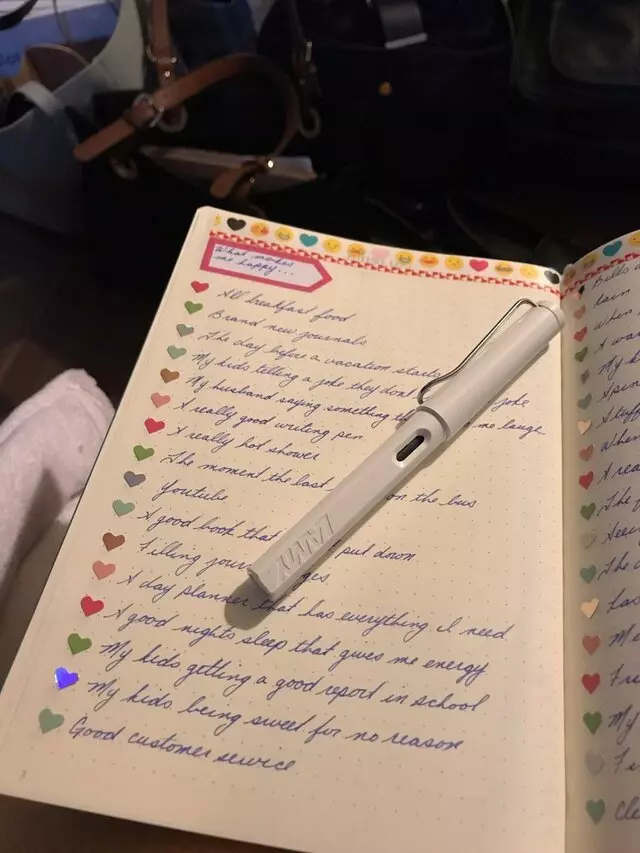 What makes
me happy...
All breakfast food
Brand new journals
The day before a vacation starts
My kids telling a joke they dont joke
My husband saying something th me lauge
A really good writing pen
A really hot shower
The moment the last on the bus
Youtube
A good book that put down
Filling jour ges
A day planner that has everything I need
A good nights sleep that gives me energy
My kids getting a good report in school
My kids being sweet for no reason
Good customer service
LAMY
Bells
rain
When
A wa
My k
Spin
A stuff
When
A rea
The f
Seei
The d
Las
Me
Fr
My
Fi
Cle